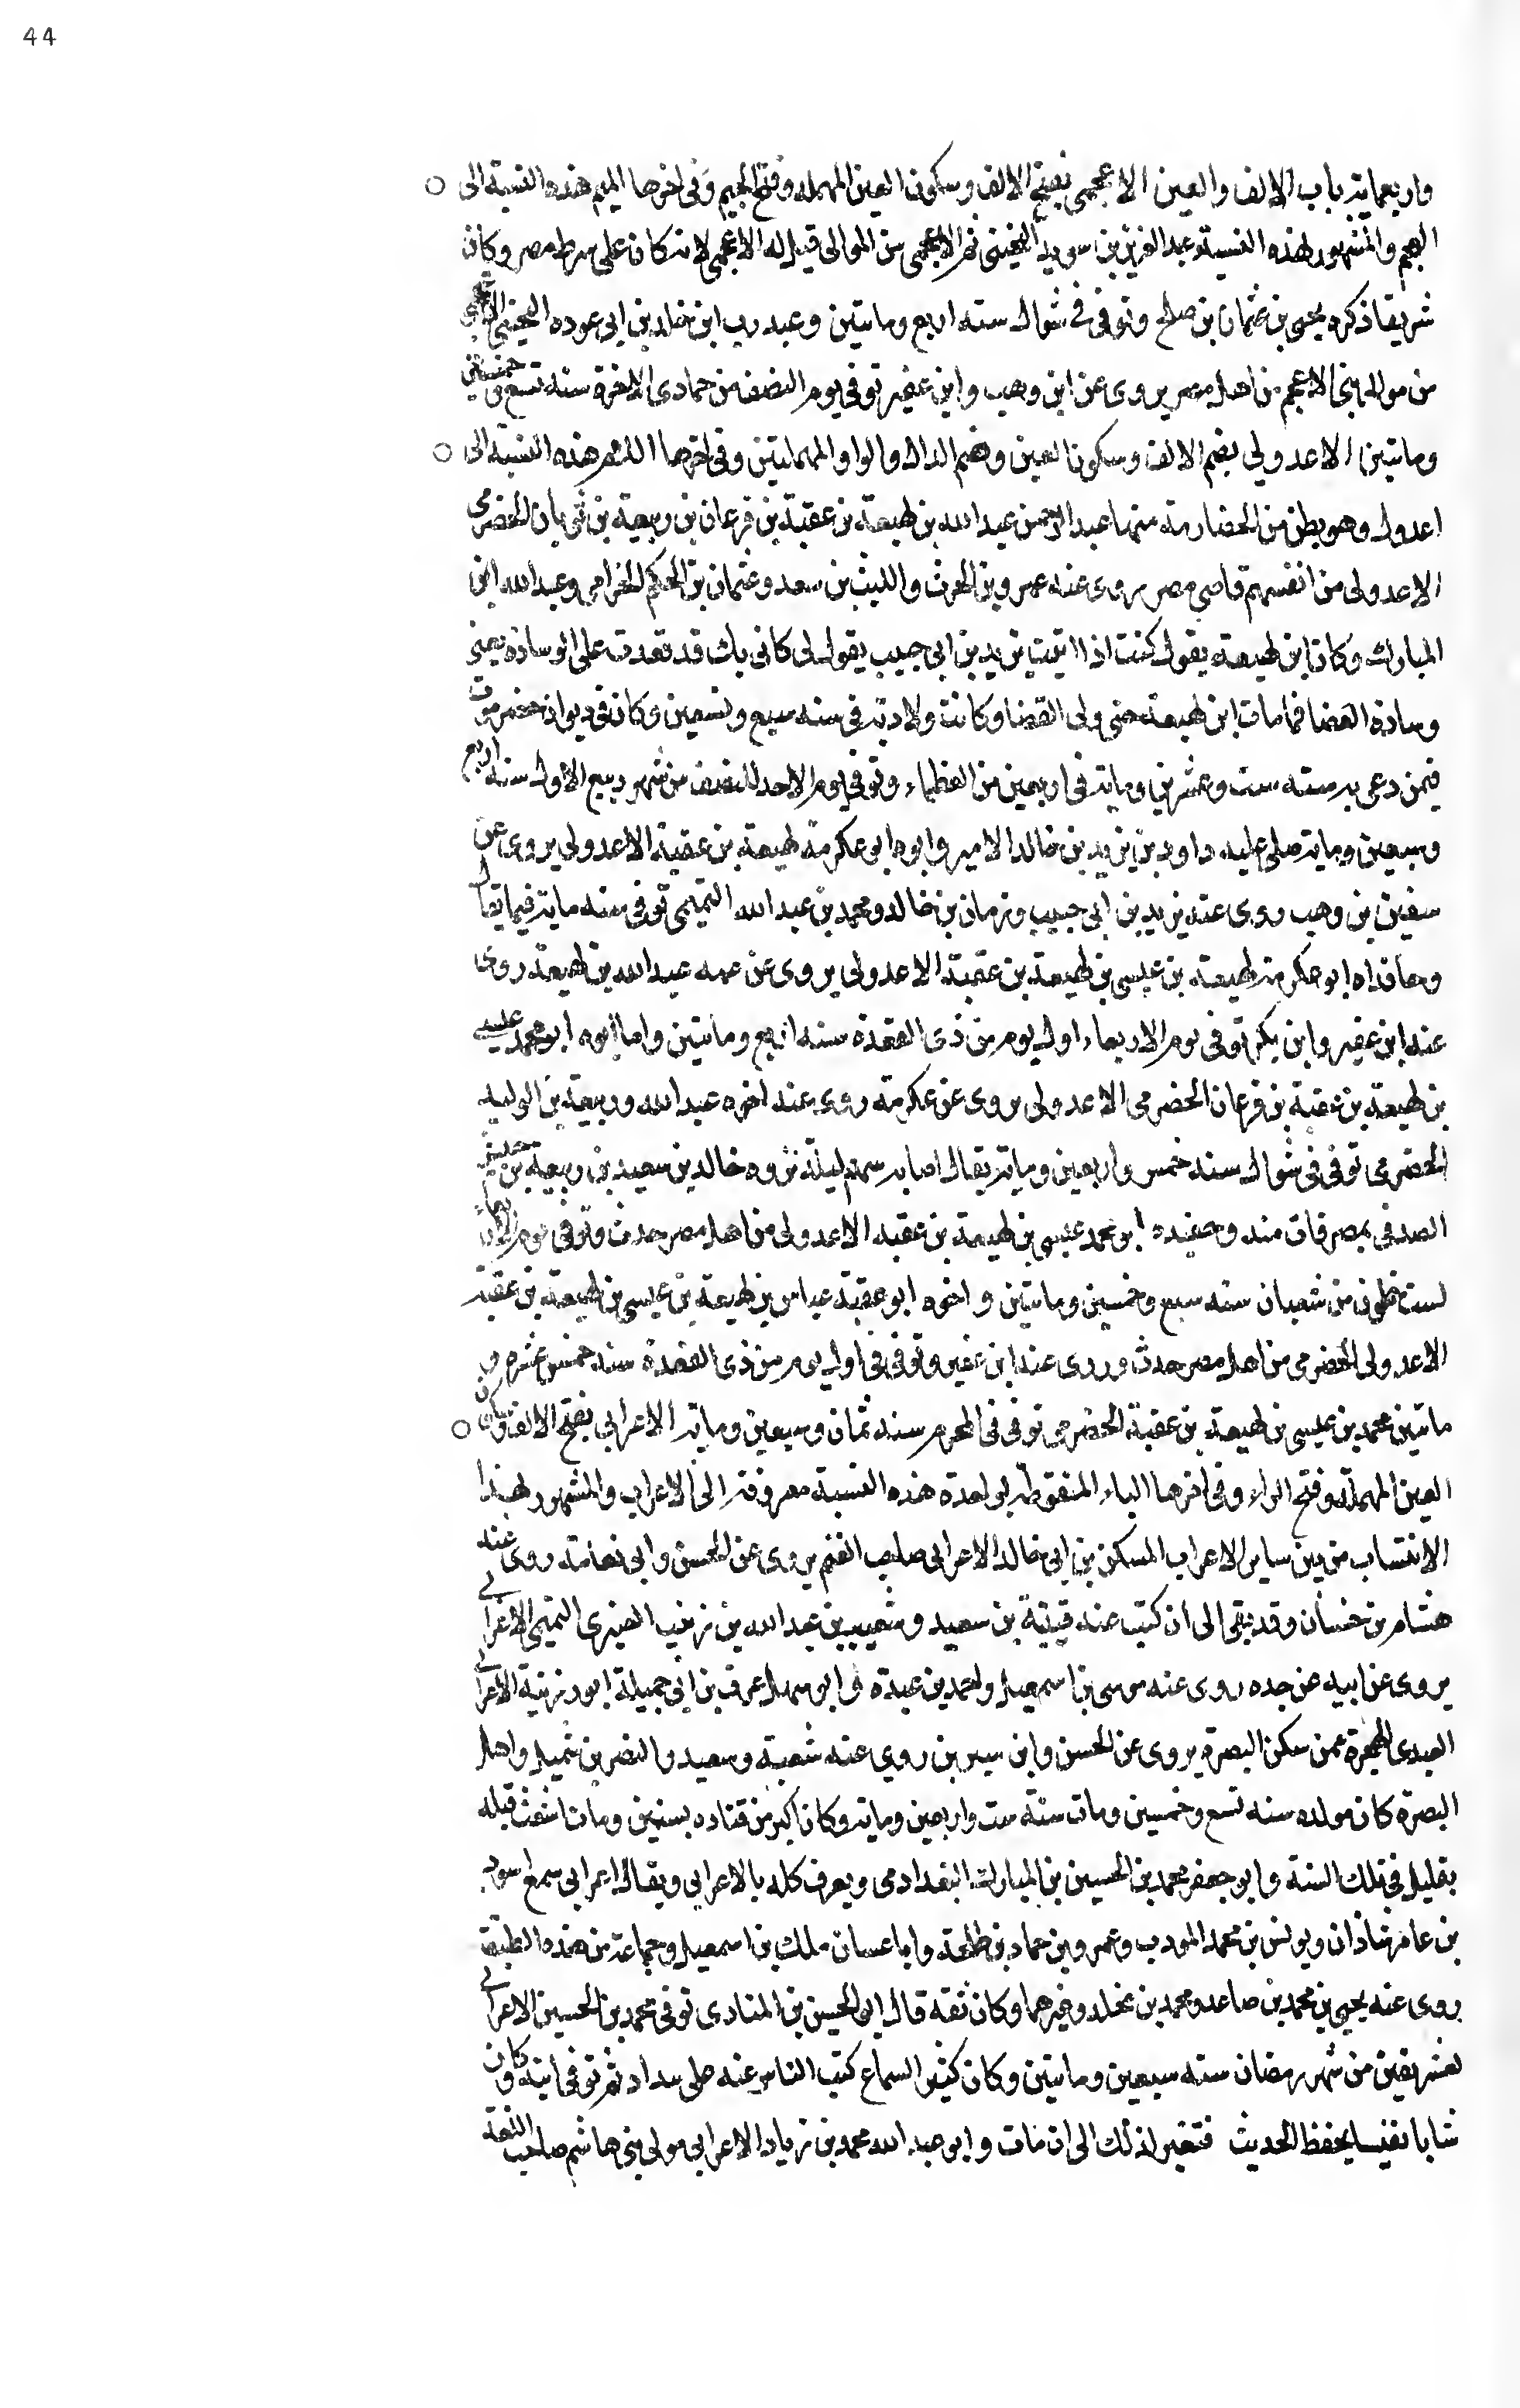 44
واربعماية باب الالف والعين الاعجمي بفتح الالف وسكون العين المهملة وفتح الجيم وفي اخرها الميم هذه النسبة الى
العجم والمشهور بهذه النسبة عبد العزيز بن سويد التجيبي ثم الاعجمي من الموالي قيل له الاعجمي لانه كان على شرط مصر وكان
شريفا ذكره يحيى بن عثمان بن صالح وتوفي في شوال سنه اربع وماتين وعبد رب ابن خالد بن ابي عوده التجيبي الاعجمي
من موالي بني الاعجم من اهل مصر يروي عن ابن وهب وابن عفير توفي يوم النصف من جمادى الاخرة سنه تسع وخمسين
وماتين الاعدولي بضم الالف وسكون العين وضم الدال والواو المهملتين وفي اخرها اللام هذه النسبة الى
اعدول وهو بطن من الحضارمة منها عبد الرحمن عبد الله بن لهيعة بن عقبة بن فرعان بن ربيعة بن ثوبان الحضرمي
الاعدولي من انفسهم قاضي مصر يروي عنه عمرو بن الحرث والليث بن سعد وعثمان بن الحكم الخرامي وعبد الله ابن
المبارك وكان ابن لهيعة يقول كنت اذا اتيت يزيد بن ابي حبيب يقول لي كاني بك قد قعدت على الوسادة يعني
وسادة القضا فما مات ابن لهيعة حتى ولى القضا وكانت ولادته في سنه سبع وتسعين وكان في ديوان حضرموت
فيمن دعى به سنه ست وعشرين وماية في اربعين من العظماء وتوفي يوم الاحد للنصف من شهر ربيع الاول سنه اربع
وسبعين وماية صلى عليه داود بن يزيد بن خالد الامير وابوه ابو عكرمة لهيعة بن عقبة الاعدولي يروي عن
سفين بن وهب روى عنه يزيد بن ابي حبيب وزمان بن خالد ومحمد بن عبد الله التميمي توفي سنه ماية فيما يقال
وحافداه ابو عكرمة لهيعة بن عيسى بن لهيعة بن عقبة الاعدولي يروي عن عمه عبد الله بن لهيعة روى
عنه ابن عفير وابن بكير توفي يوم الاربعاء اول يوم من ذي القعدة سنه اربع وماتين واما ابوه ابو محمد عيسى
بن لهيعة بن عقبة بن فرعان الحضرمي الاعدولي يروي عن عكرمة روى عنه اخوه عبد الله وربيعة بن الوليد
الحضرمي توفي في شوال سنه خمس واربعين وماية يقال اصابه سهم ليلة خالد بن سعيد بن ربيعة بن
الصدفي بمصر فمات منه وحفيده ابو محمد عيسى بن لهيعة بن عقبه الاعدولي من اهل مصر حدث وتوفي يوم الاربعاء
لست خلون من شعبان سنه سبع وخمسين وماتين واخوه ابو عقبة عباس بن لهيعة بن عيسى بن لهيعة بن عقبة
الاعدولي الحضرمي من اهل مصر حدث وروى عنه ابن عفير وتوفي في اول يوم من ذي القعدة سنه خمس عشرة و
ماتين محمد بن عيسى بن لهيعة بن عقبة الحضرمي توفي في المحرم سنه ثمان وسبعين وماية الاعرابي بفتح الالف وسكون
العين المهملة وفتح الراء وفي اخرها الباء المنقوطة بواحدة هذه النسبة معروفة الى الاعراب والمشهور بهذا
الانتساب من بين ساير الاعراب المسكن بن ابي خالد الاعرابي صاحب الغنم يروي عن الحسن وابي نعامة روى عنه
هشام بن حسان وقد بقي الى ان كتب عنه قتيبة بن سعيد وشعيب بن عبد الله بن زبيب العنبري التميمي الاعرابي
يروى عن ابيه عن جده روى عنه موسى بن اسمعيل واحمد بن عبدة وابو سهل عوف بن ابي جميلة الاعرابي
العبدي الهجري ممن سكن البصرة يروى عن الحسن وابن سيرين روى عنه شعبة وسعيد والنضر بن شميل واهل
البصرة كان مولده سنه تسع وخمسين ومات سنة ست واربعين وماية وكان اكبر من قتاده بسنتين ومات اشعث قبله
بقليل في تلك السنة وابو جعفر محمد بن الحسين بن المبارك البغدادي ويعرف كله بالاعرابي ويقال اعرابي سمع اسود
بن عامر شاذان ويونس بن محمد المودب وعمرو بن حماد بن طلحة وابا غسان ملك بن اسمعيل وجماعة من هذه الطبقة
روى عنه يحيى بن محمد بن صاعد ومحمد بن مخلد وغيرهما وكان ثقة قال ابو الحسين بن المنادي توفي محمد بن الحسين الاعرابي
لعشر بقين من شهر رمضان سنه سبعين وماتين وكان كثير السماع كتب الناس عنه على سداد ثم توفي ابنه وكان
شابا نفيسا يحفظ الحديث فتغير لذلك الى ان مات وابو عبد الله محمد بن زياد الاعرابي مولى بني هاشم صاحب اللغة